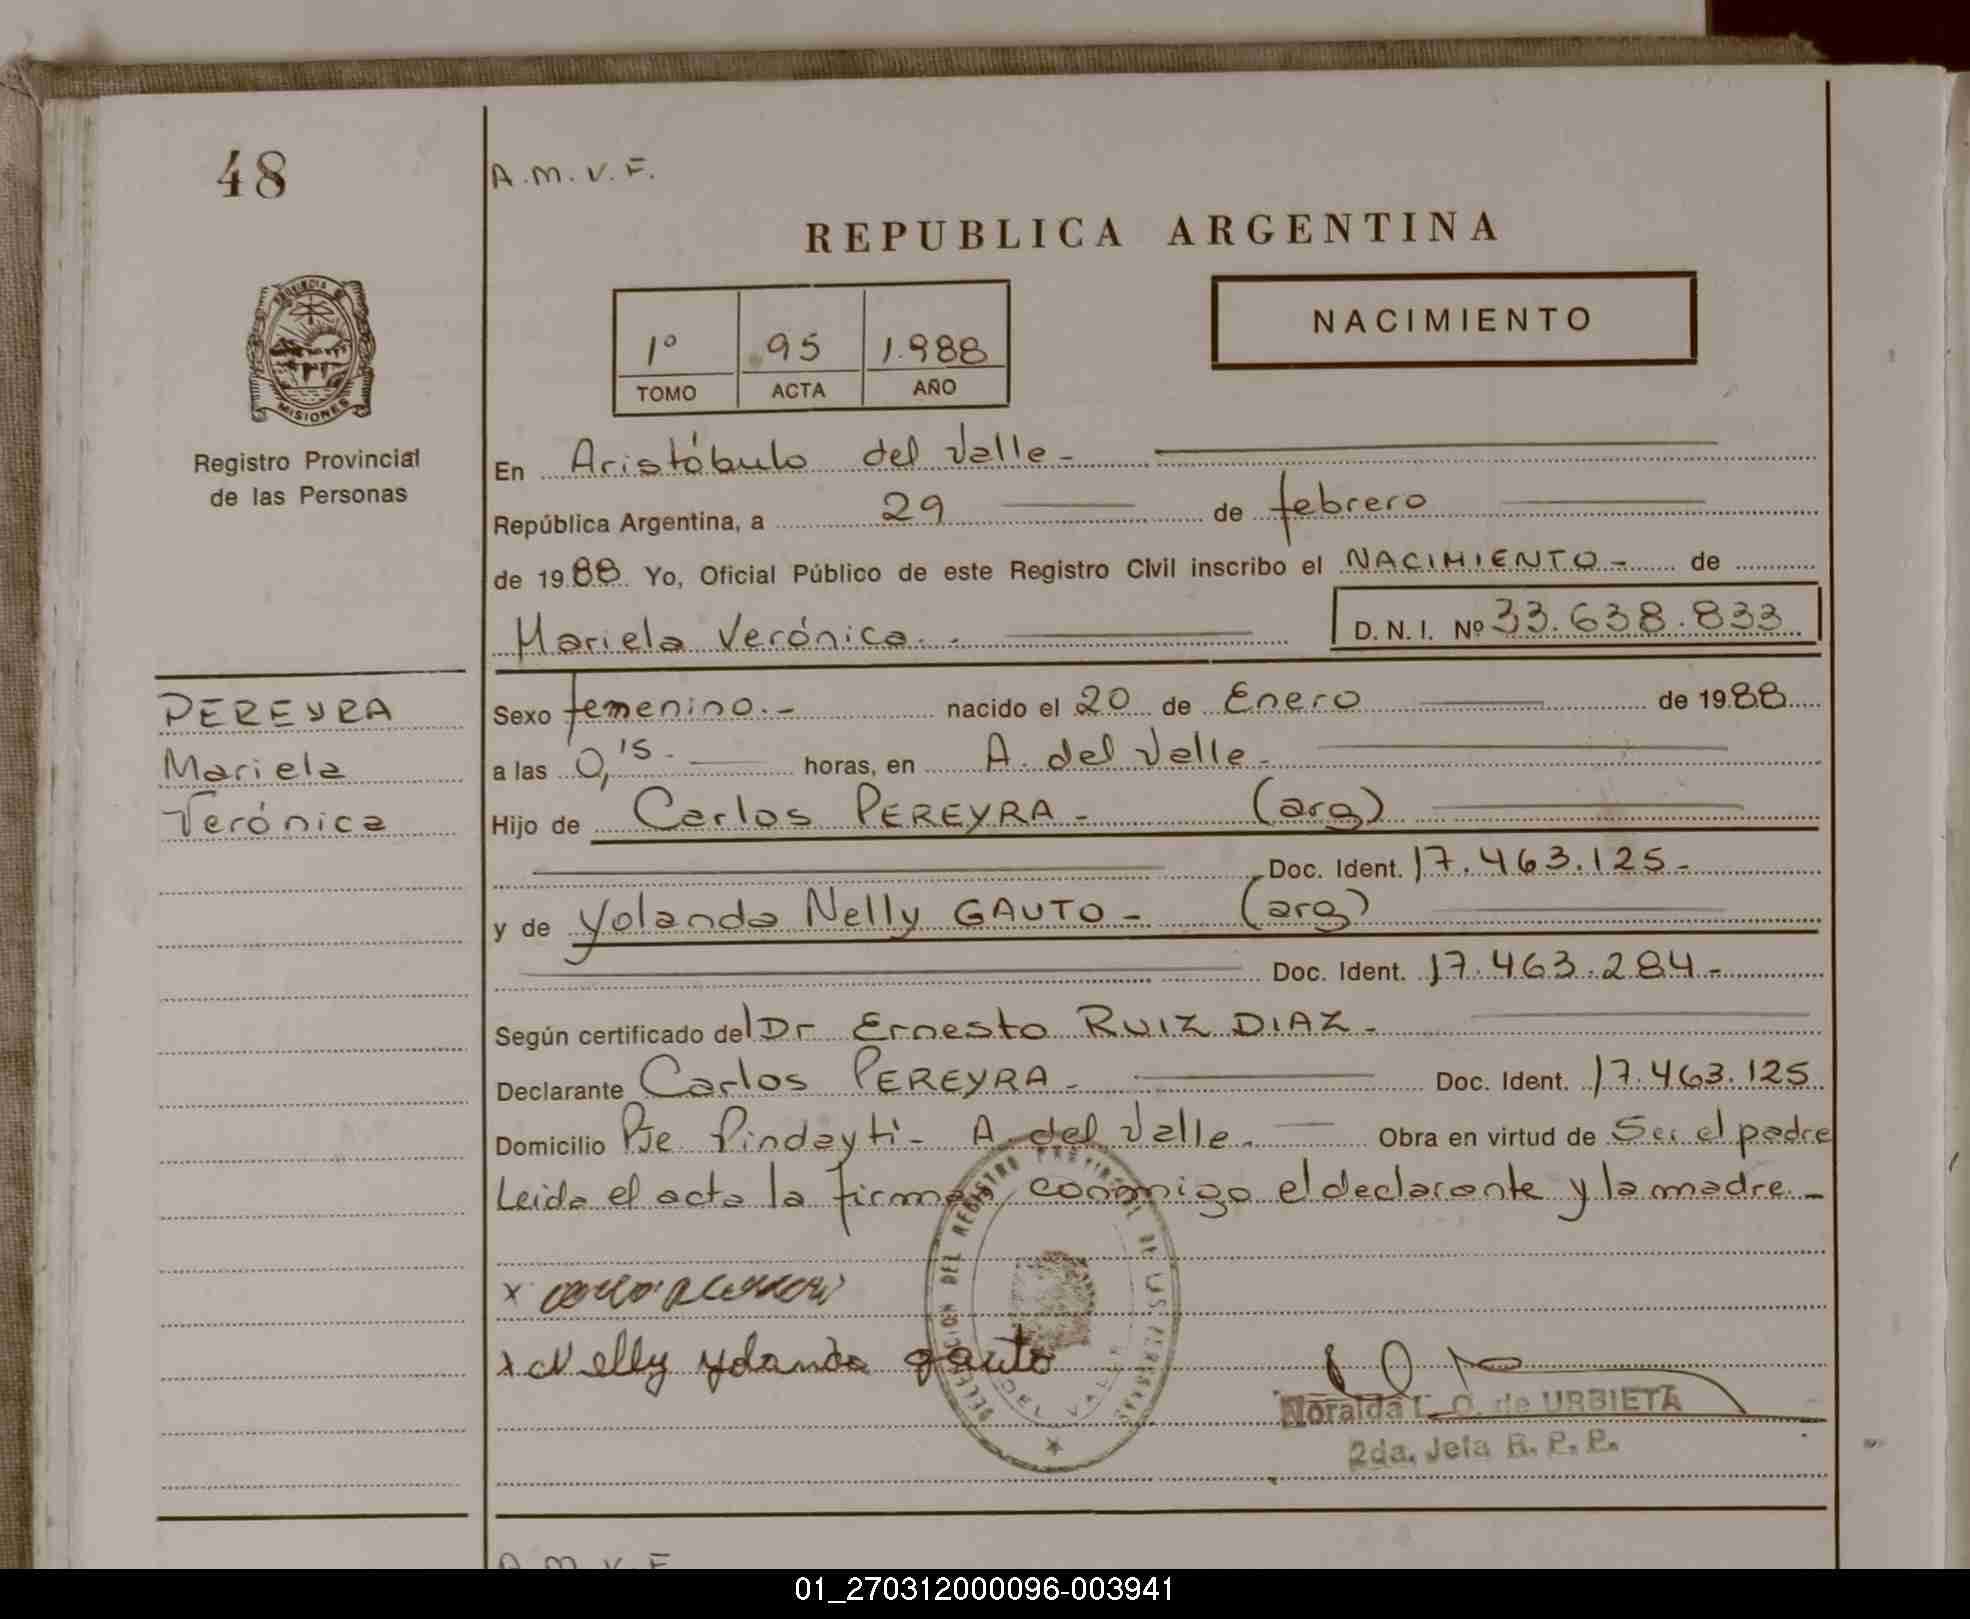 48
A.M.V.F.
REPUBLICA ARGENTINA
1º 95 1.988
TOMO ACTA AÑO
NACIMIENTO
PROVINCIA DE
MISIONES
Registro Provincial
de las Personas
En Aristóbulo del Valle-
República Argentina, a 29 de febrero
de 1988 Yo, Oficial Público de este Registro Civil inscribo el NACIMIENTO- de
Mariela Verónica.- D.N.I. Nº 33.638.833
PEREYRA
Mariela
Verónica
Sexo femenino.- nacido el 20 de Enero de 1988
a las 0,15- horas, en A. del Valle-
Hijo de Carlos PEREYRA- (arg)
Doc. Ident. 17.463.125-
y de Yolanda Nelly GAUTO- (arg)
Doc. Ident. 17.463.284-
Según certificado del Dr Ernesto RUIZ DIAZ-
Declarante Carlos PEREYRA- Doc. Ident. 17.463.125
Domicilio Pje Pindayti- A. del Valle- Obra en virtud de Ser el padre
Leida el acta la firman conmigo el declarante y la madre.-
DELEGACION DEL REGISTRO PROVINCIAL DE LAS PERSONAS
VALLE
x
x Nelly yolanda gauto
Noralda L. O. de URBIETA
2da. Jefa R. P. P.
A.M.V.F.
01_270312000096-003941